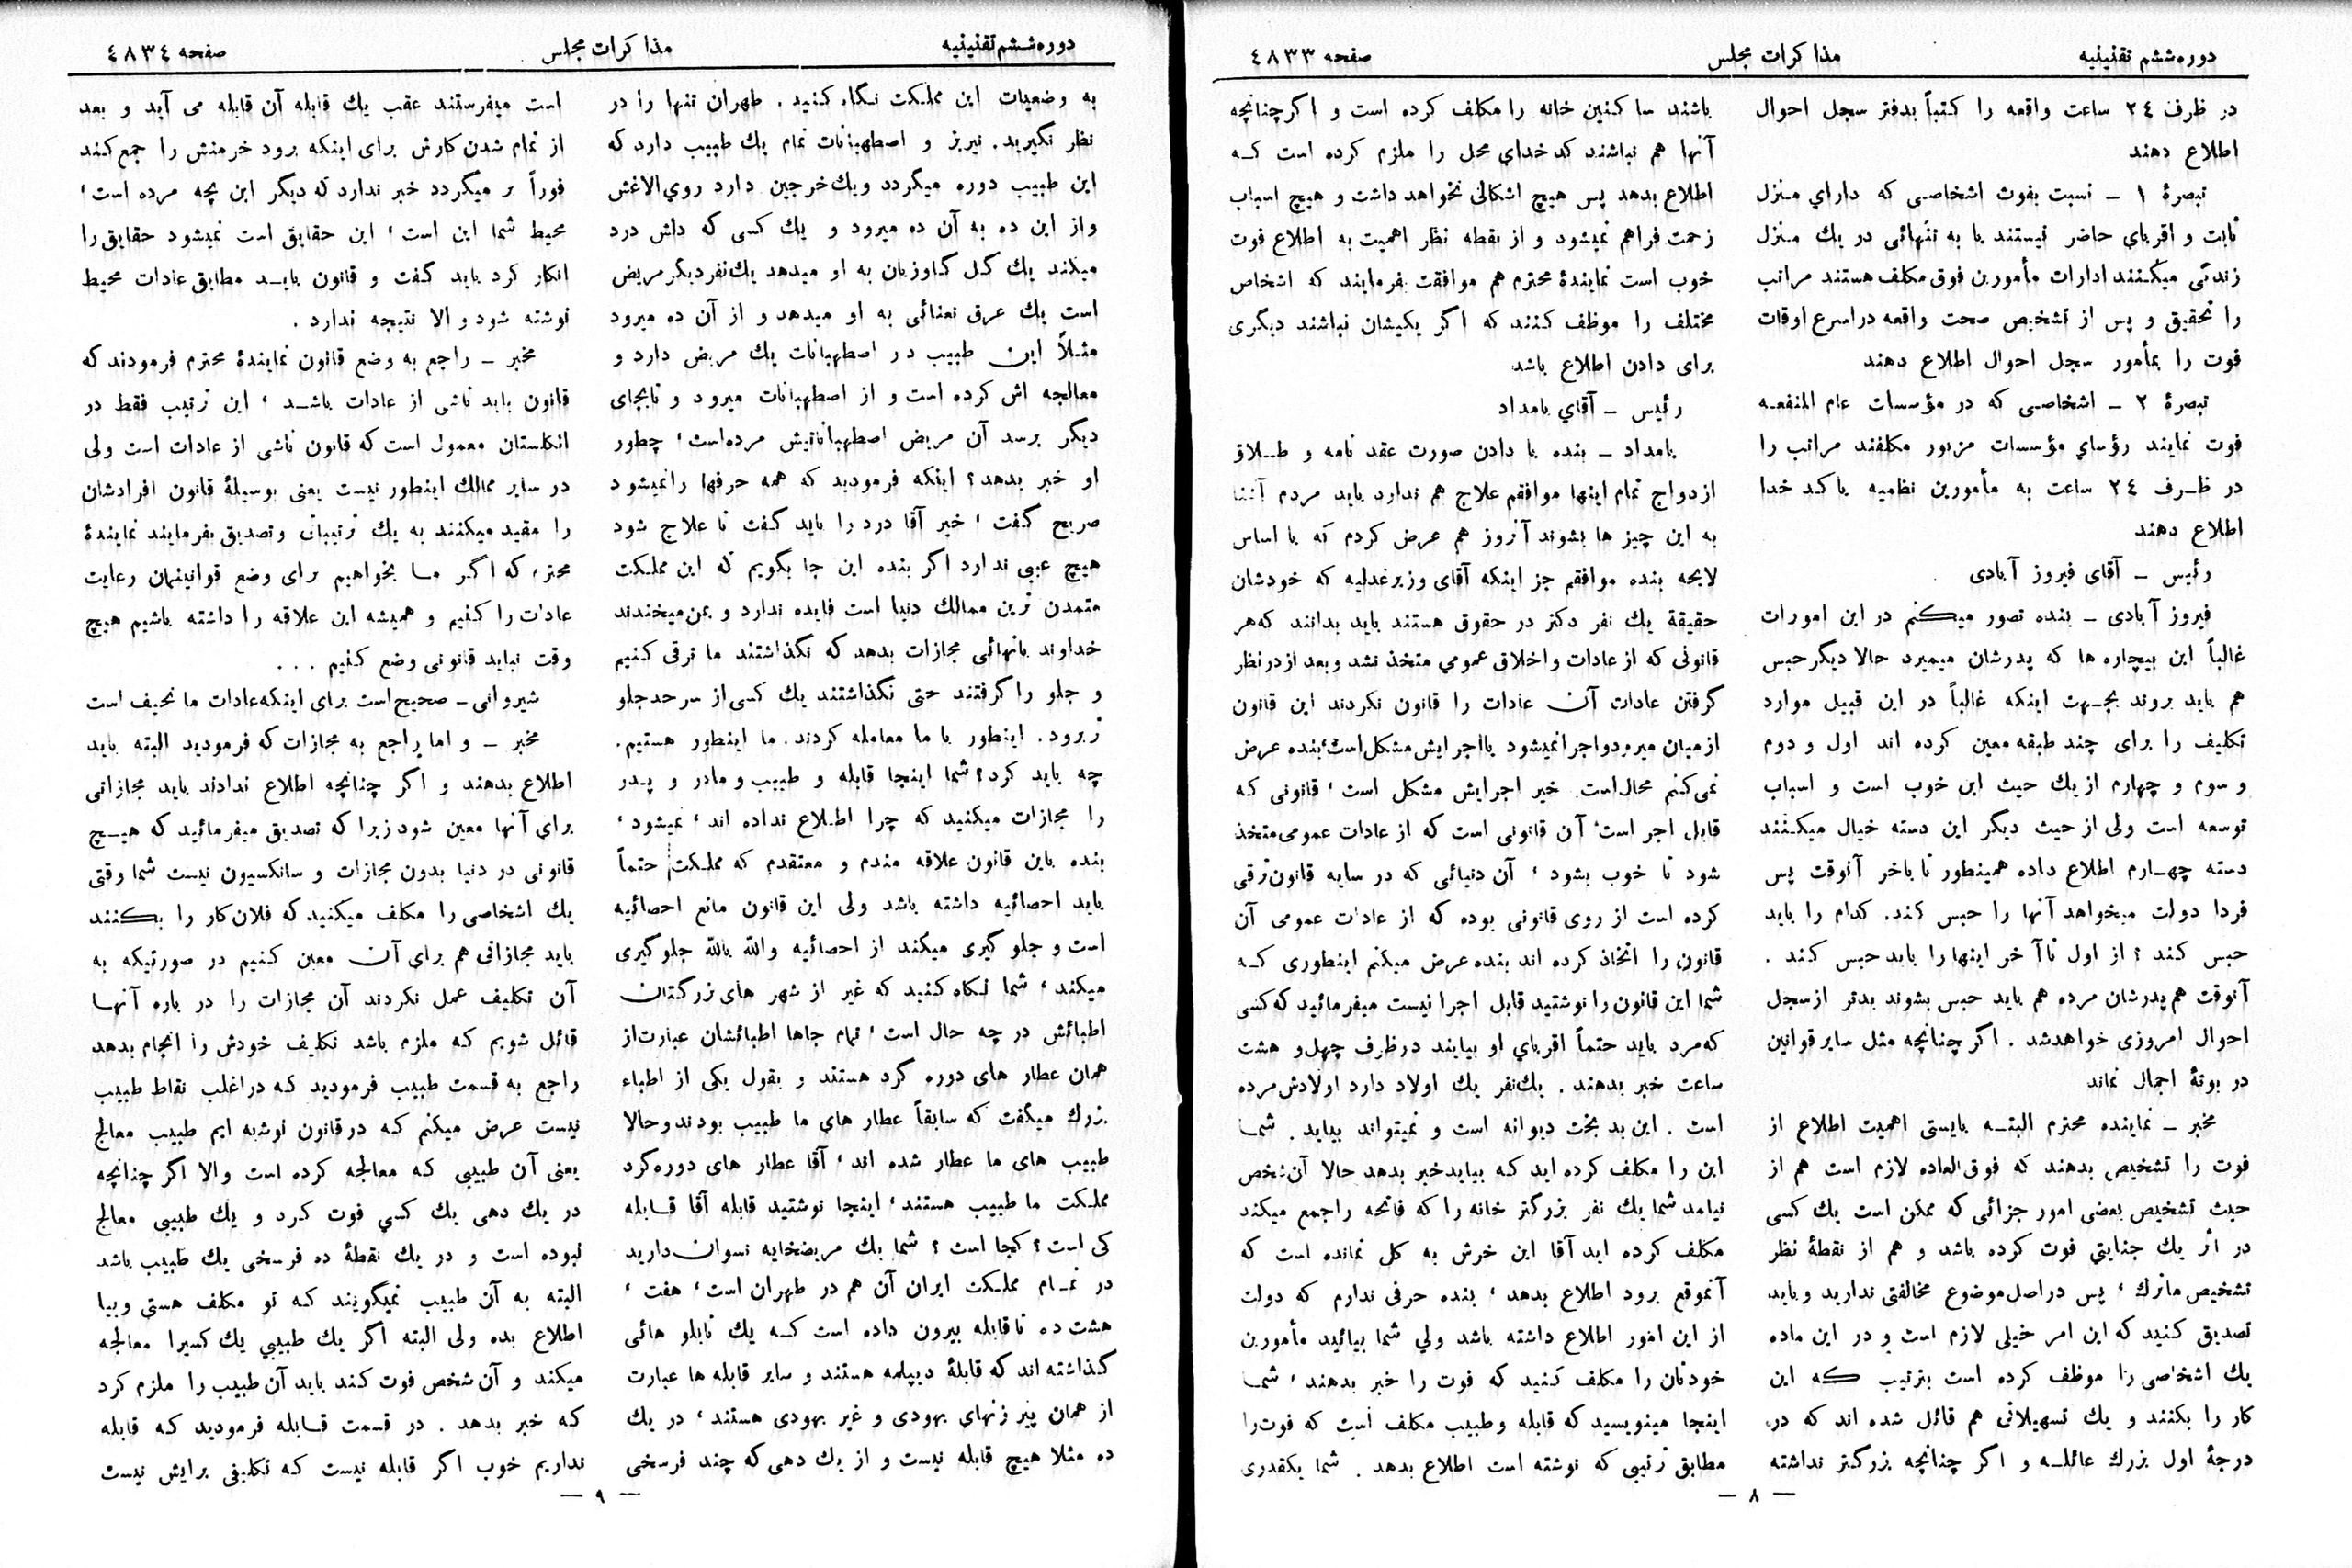 دوره ششم تقنینیه
مذاکرات مجلس
صفحه ٤٨٣٣
در ظرف ٢٤ ساعت واقعه را کتباً بدفتر سجل احوال
اطلاع دهند
تبصرهٔ ١ ـ نسبت بفوت اشخاصی که دارای منزل
ثابت و اقربای حاضر نیستند یا به تنهائی در یك منزل
زندگی میکنند ادارات مأمورین فوق مکلف هستند مراتب
را تحقیق و پس از تشخیص صحت واقعه در اسرع اوقات
فوت را بمأمور سجل احوال اطلاع دهند
تبصرهٔ ٢ ـ اشخاصی که در مؤسسات عام المنفعه
فوت نمایند رؤسای مؤسسات مزبور مکلفند مراتب را
در ظرف ٢٤ ساعت به مأمورین نظمیه یا کد خدا
اطلاع دهند
رئیس ـ آقای فیروز آبادی
فیروز آبادی ـ بنده تصور میکنم در این امورات
غالباً این بیچاره ها که پدرشان میمیرد حالا دیگر حبس
هم باید بروند بجهت اینکه غالباً در این قبیل موارد
تکلیف را برای چند طبقه معین کرده اند اول و دوم
و سوم و چهارم از یك حیث این خوب است و اسباب
توسعه است ولی از حیث دیگر این دسته خیال میکنند
دسته چهارم اطلاع داده همینطور تا باخر آنوقت پس
فردا دولت میخواهد آنها را حبس کند. کدام را باید
حبس کند ؟ از اول تا آخر اینها را باید حبس کند .
آنوقت هم پدرشان مرده هم باید حبس بشوند بدتر از سجل
احوال امروزی خواهد شد . اگر چنانچه مثل سایر قوانین
در بوتهٔ اجمال نماند
مخبر ـ نماینده محترم البته بایستی اهمیت اطلاع از
فوت را تشخیص بدهند که فوق العاده لازم است هم از
حیث تشخیص بعضی امور جزائی که ممکن است یك کسی
در اثر یك جنایتی فوت کرده باشد و هم از نقطهٔ نظر
تشخیص ماترك ، پس در اصل موضوع مخالفتی ندارید و باید
تصدیق کنید که این امر خیلی لازم است و در این ماده
یك اشخاصی را موظف کرده است بترتیب که این
کار را بکنند و یك تسهیلاتی هم قائل شده اند که در
درجهٔ اول بزرك عائله و اگر چنانچه بزرگتر نداشته
باشند ساکنین خانه را مکلف کرده است و اگر چنانچه
آنها هم نباشند کد خدای محل را ملزم کرده است که
اطلاع بدهد پس هیچ اشکالی نخواهد داشت و هیچ اسباب
زحمت فراهم نمیشود و از نقطه نظر اهمیت به اطلاع فوت
خوب است نمایندهٔ محترم هم موافقت بفرمایند که اشخاص
مختلف را موظف کنند که اگر یکیشان نباشند دیگری
برای دادن اطلاع باشد
رئیس ـ آقای بامداد
بامداد ـ بنده با دادن صورت عقد نامه و طلاق
ازدواج تمام اینها موافقم علاج هم ندارد باید مردم آشنا
به این چیز ها بشوند آنروز هم عرض کردم که با اساس
لایحه بنده موافقم جز اینکه آقای وزیر عدلیه که خودشان
حقیقة یك نفر دکتر در حقوق هستند باید بدانند که هر
قانونی که از عادات و اخلاق عمومی متخذ نشد و بعد از در نظر
گرفتن عادات آن عادات را قانون نکردند این قانون
از میان میرود و اجرا نمیشود یا اجرایش مشکل است بنده عرض
نمی کنم محال است خیر اجرایش مشکل است ، قانونی که
قابل اجر است آن قانونی است که از عادات عمومی متخذ
شود تا خوب بشود ، آن دنیائی که در سایه قانون ترقی
کرده است از روی قانونی بوده که از عادات عمومی آن
قانون را اتخاذ کرده اند بنده عرض میکنم اینطوری که
شما این قانون را نوشتید قابل اجرا نیست میفرمائید که کسی
که مرد باید حتماً اقربای او بیایند در ظرف چهل و هشت
ساعت خبر بدهند . یك نفر یك اولاد دارد اولادش مرده
است . این بد بخت دیوانه است و نمیتواند بیاید . شما
این را مکلف کرده اید که بیاید خبر بدهد حالا آن شخص
نیامد شما یك نفر بزرگتر خانه را که فاتحه را جمع میکند
مکلف کرده اید آقا این خرش به کل نمانده است که
آنموقع برود اطلاع بدهد ، بنده حرفی ندارم که دولت
از این امور اطلاع داشته باشد ولی شما بیائید مأمورین
خودتان را مکلف کنید که فوت را خبر بدهند ، شما
اینجا مینویسید که قابله و طبیب مکلف است که فوت را
مطابق ترتیبی که نوشته است اطلاع بدهد . شما یکقدری
— ٨ —
دوره ششم تقنینیه
مذاکرات مجلس
صفحه ٤٨٣٤
به وضعیات این مملکت نگاه کنید . طهران تنها را در
نظر نگیرید. نیریز و اصطهبانات تمام یك طبیب دارد که
این طبیب دوره میگردد و یك خرجین دارد روی الاغش
و از این ده به آن ده میرود و یك کسی که دلش درد
میکند یك گل گاوزبان به او میدهد یك نفر دیگر مریض
است یك عرق نعنائی به او میدهد و از آن ده میرود
مثلاً این طبیب در اصطهبانات یك مریض دارد و
معالجه اش کرده است و از اصطهبانات میرود و تا بجای
دیگر برسد آن مریض اصطهباناتیش مرده است ، چطور
او خبر بدهد ؟ اینکه فرمودید که همه حرفها را نمیشود
صریح گفت ، خیر آقا درد را باید گفت تا علاج شود
هیچ عیبی ندارد اگر بنده این جا بگویم که این مملکت
متمدن ترین ممالك دنیا است فایده ندارد و بمن میخندند
خداوند بانهائی مجازات بدهد که نگذاشتند ما ترقی کنیم
و جلو را گرفتند حتی نگذاشتند یك کسی از سر حد جلو
تر برود . اینطور با ما معامله کردند . ما اینطور هستیم.
چه باید کرد ؟ شما اینجا قابله و طبیب و مادر و پدر
را مجازات میکنید که چرا اطلاع نداده اند ، نمیشود ،
بنده باین قانون علاقه مندم و معتقدم که مملکت حتماً
باید احصائیه داشته باشد ولی این قانون مانع احصائیه
است و جلو گیری میکند از احصائیه والله بالله جلو گیری
میکند ، شما نگاه کنید که غیر از شهر های بزرگتان
اطبائش در چه حال است ، تمام جاها اطبائشان عبارت از
همان عطار های دوره گرد هستند و بقول یکی از اطباء
بزرك میگفت که سابقاً عطار های ما طبیب بودند و حالا
طبیب های ما عطار شده اند ، آقا عطار های دوره گرد
مملکت ما طبیب هستند ، اینجا نوشتید قابله آقا قابله
کی است ؟ کجا است ؟ شما یك مریضخانه نسوان دارید
در تمام مملکت ایران آن هم در طهران است ، هفت ،
هشت ده تا قابله بیرون داده است که یك تابلو هائی
گذاشته اند که قابلهٔ دیپلمه هستند و سایر قابله ها عبارت
از همان پیر زنهای یهودی و غیر یهودی هستند ، در یك
ده مثلا هیچ قابله نیست و از یك دهی که چند فرسخی
است میفرستند عقب یك قابله آن قابله می آید و بعد
از تمام شدن کارش برای اینکه برود خرمنش را جمع کند
فوراً بر میگردد خبر ندارد که دیگر این بچه مرده است ،
محیط شما این است ، این حقایق است نمیشود حقایق را
انکار کرد باید گفت و قانون باید مطابق عادات محیط
نوشته شود و الا نتیجه ندارد .
مخبر ـ راجع به وضع قانون نمایندهٔ محترم فرمودند که
قانون باید ناشی از عادات باشد ، این ترتیب فقط در
انگلستان معمول است که قانون ناشی از عادات است ولی
در سایر ممالك اینطور نیست یعنی بوسیلهٔ قانون افرادشان
را مقید میکنند به یك ترتیباتی و تصدیق بفرمایند نمایندهٔ
محترم که اگر ما بخواهیم برای وضع قوانینمان رعایت
عادات را کنیم و همیشه این علاقه را داشته باشیم هیچ
وقت نباید قانونی وضع کنیم . . .
شیروانی ـ صحیح است برای اینکه عادات ما نحیف است
مخبر ـ و اما راجع به مجازات که فرمودید البته باید
اطلاع بدهند و اگر چنانچه اطلاع ندادند باید مجازاتی
برای آنها معین شود زیرا که تصدیق میفرمائید که هیچ
قانونی در دنیا بدون مجازات و سانکسیون نیست شما وقتی
یك اشخاصی را مکلف میکنید که فلان کار را بکنند
باید مجازاتی هم برای آن معین کنیم در صورتیکه به
آن تکلیف عمل نکردند آن مجازات را در باره آنها
قائل شویم که ملزم باشد تکلیف خودش را انجام بدهد
راجع به قسمت طبیب فرمودید که در اغلب نقاط طبیب
نیست عرض میکنم که در قانون نوشته ایم طبیب معالج
یعنی آن طبیبی که معالجه کرده است والا اگر چنانچه
در یك دهی یك کسی فوت کرد و یك طبیبی معالج
نبوده است و در یك نقطهٔ ده فرسخی یك طبیب باشد
البته به آن طبیب نمیگویند که تو مکلف هستی و بیا
اطلاع بده ولی البته اگر یك طبیبی یك کسیرا معالجه
میکند و آن شخص فوت کند باید آن طبیب را ملزم کرد
که خبر بدهد . در قسمت قابله فرمودید که قابله
نداریم خوب اگر قابله نیست که تکلیفی برایش نیست
— ٩ —